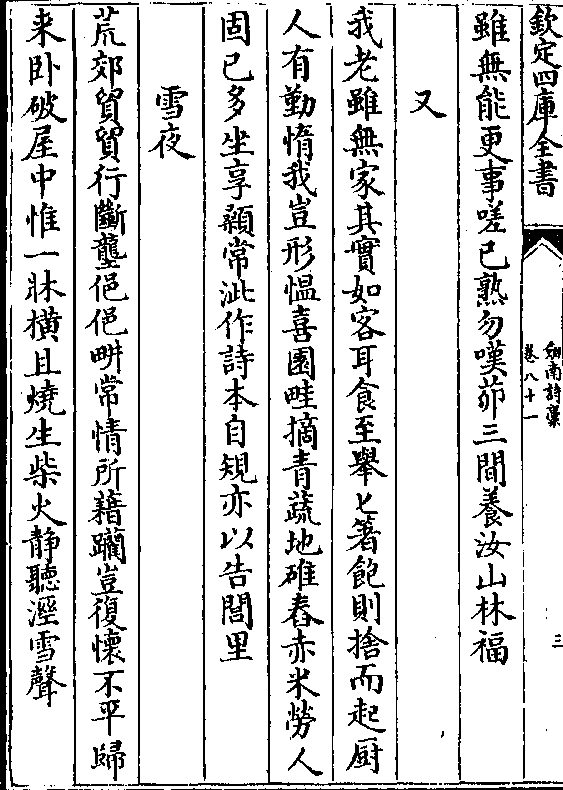 欽定四庫全書
劔南詩藁
卷八十一
三
雖無能更事嗟已熟勿嘆茆三間養汝山林福
又
我老雖無家其實如客耳食至舉匕箸飽則捨而起厨
人有勤惰我豈形愠喜園畦摘青蔬地碓舂赤米勞人
固已多坐享顙常泚作詩本自規亦以告閭里
雪夜
荒郊貿貿行斷壟俋俋畊常情所藉躪豈復懷不平歸
来卧破屋中惟一牀橫且燒生柴火静聽溼雪聲